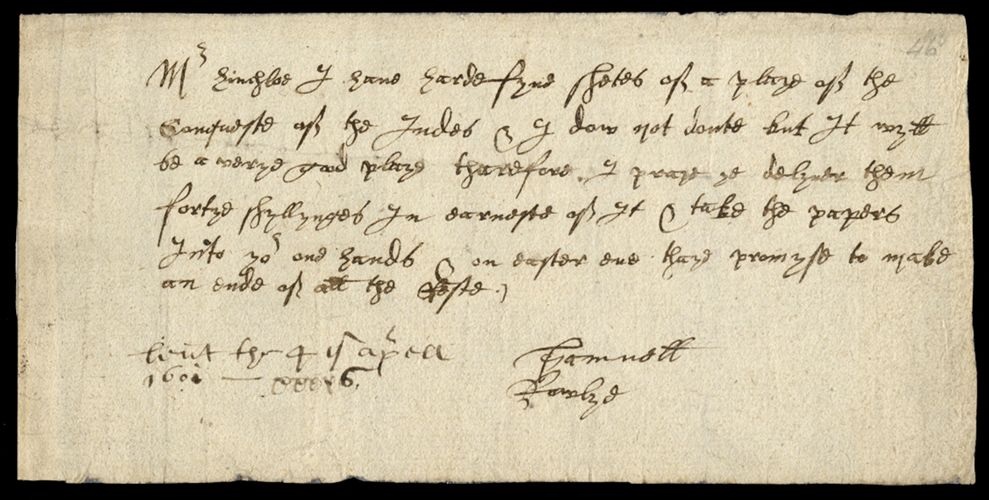 46
Mr hinchloe I have harde fyve shetes of a playe of the
Conqueste of the Indes & I dow not doute but It wyll
be a verye good playe tharefore I praye ye delyver them
fortye shyllynges In earneste of It & take the papers
Into yor one hands & on easter eve thaye promyse to make
an ende of all the Reste
lent the 4 of aprell
1601
Samuell
Rowlye